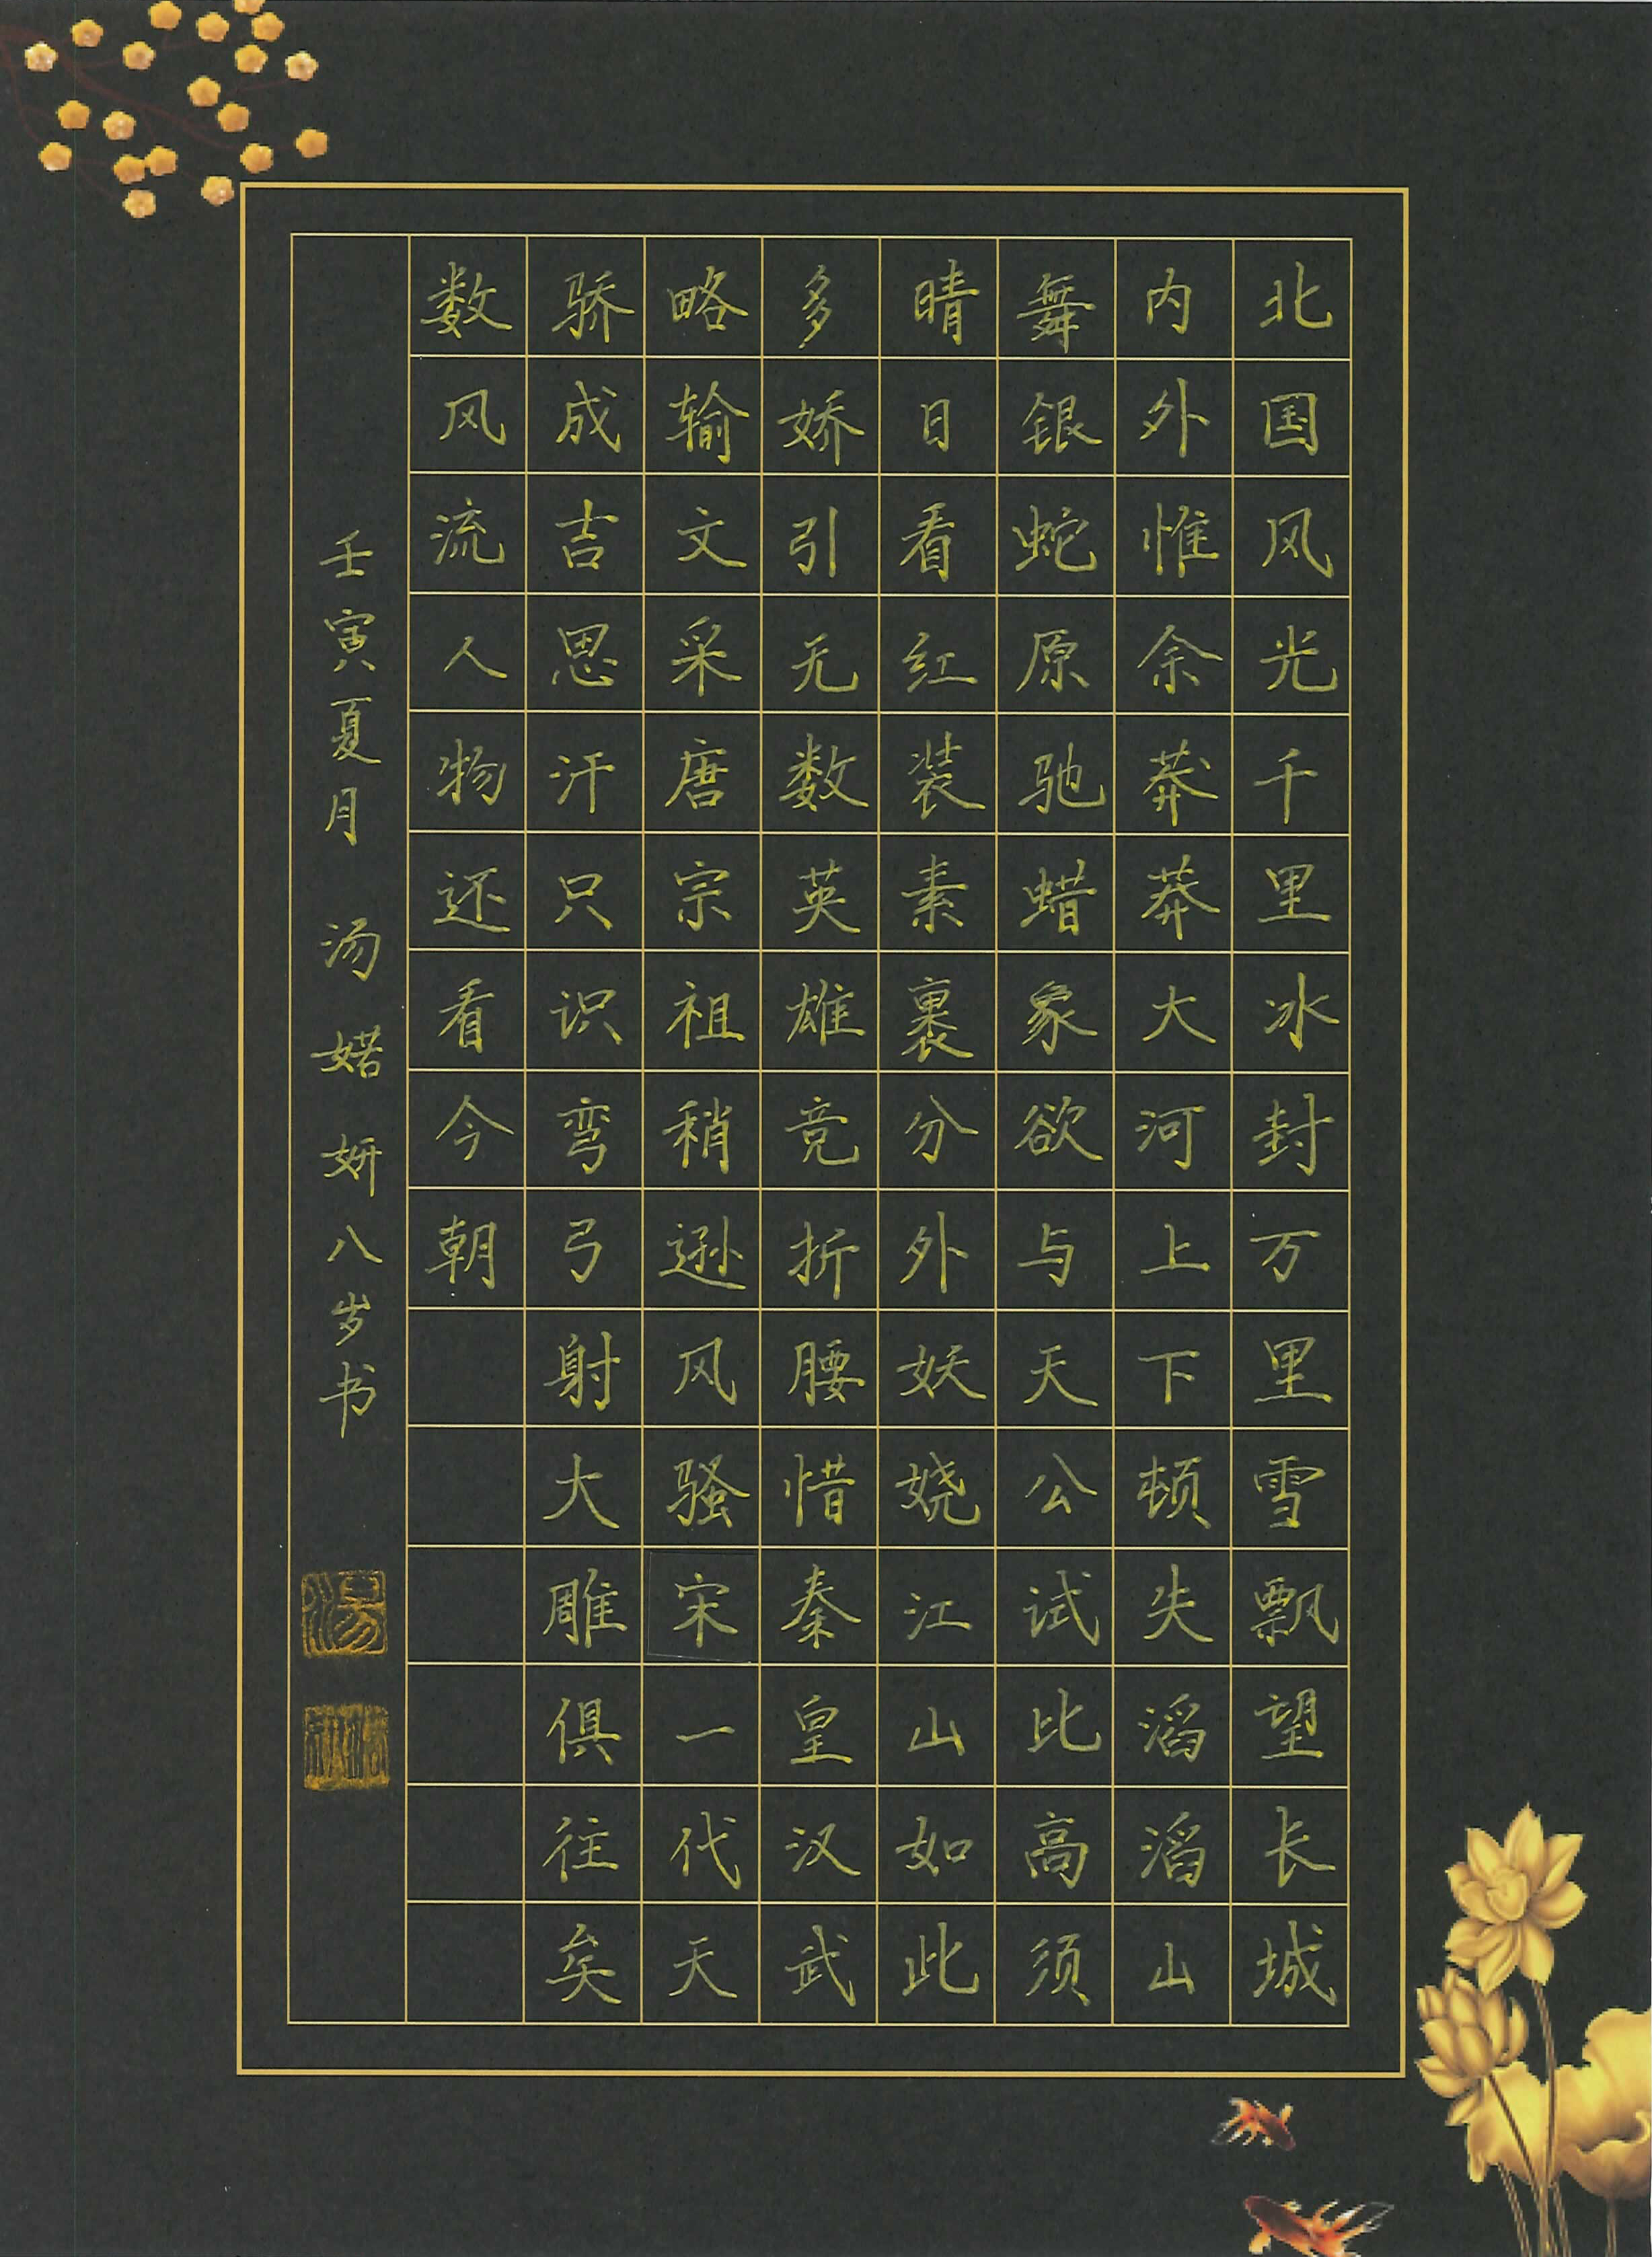 北国风光千里冰封万里雪飘望长城
内外惟余莽莽大河上下顿失滔滔山
舞银蛇原驰蜡象欲与天公试比高须
晴日看红装素裹分外妖娆江山如此
多娇引无数英雄竞折腰惜秦皇汉武
略输文采唐宗祖稍逊风骚宋一代天
骄成吉思汗只识弯弓射大雕俱往矣
数风流人物还看今朝
壬寅夏月 汤婼妍八岁书
湯